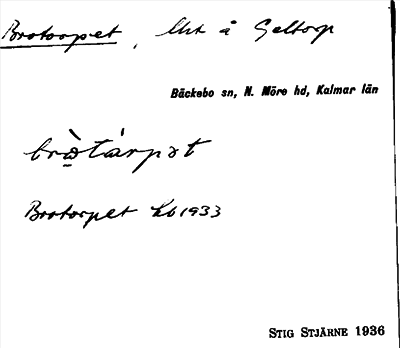 Brotorpet, lht å Geltorp
Bäckebo sn, N. Möre hd, Kalmar län
bròtárpət
Brotorpet Lb 1933
STIG STJÄRNE 1936